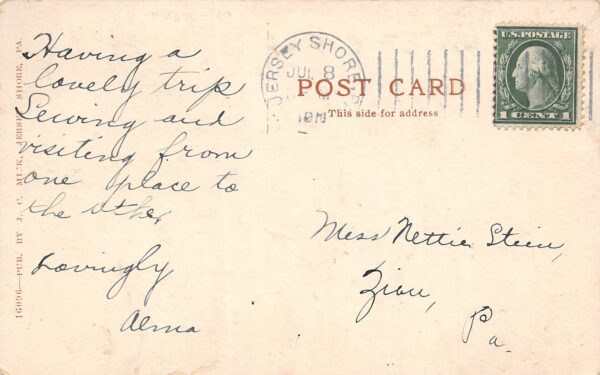 Having a
lovely trip
Sewing and
visiting from
one place to
the other
Lovingly
Alma
16096—PUB. BY J. C. MICK, JERSEY SHORE, PA.
JERSEY SHORE
JUL 8
POST CARD
This side for address
U.S. POSTAGE
1 CENT 1
Miss Nettie Stein,
Zion,
Pa.